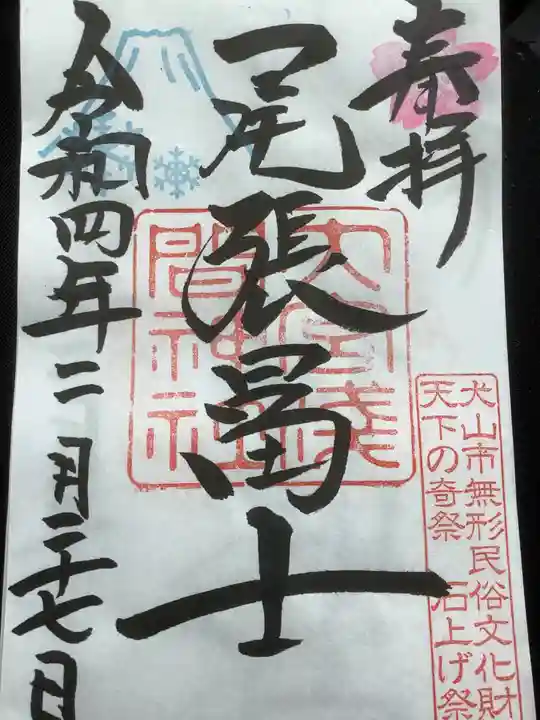 奉拝
犬山市無形民俗文化財
天下の奇祭 石上げ祭
尾張冨士
大宮淺
間神社
令和四年二月二十七日